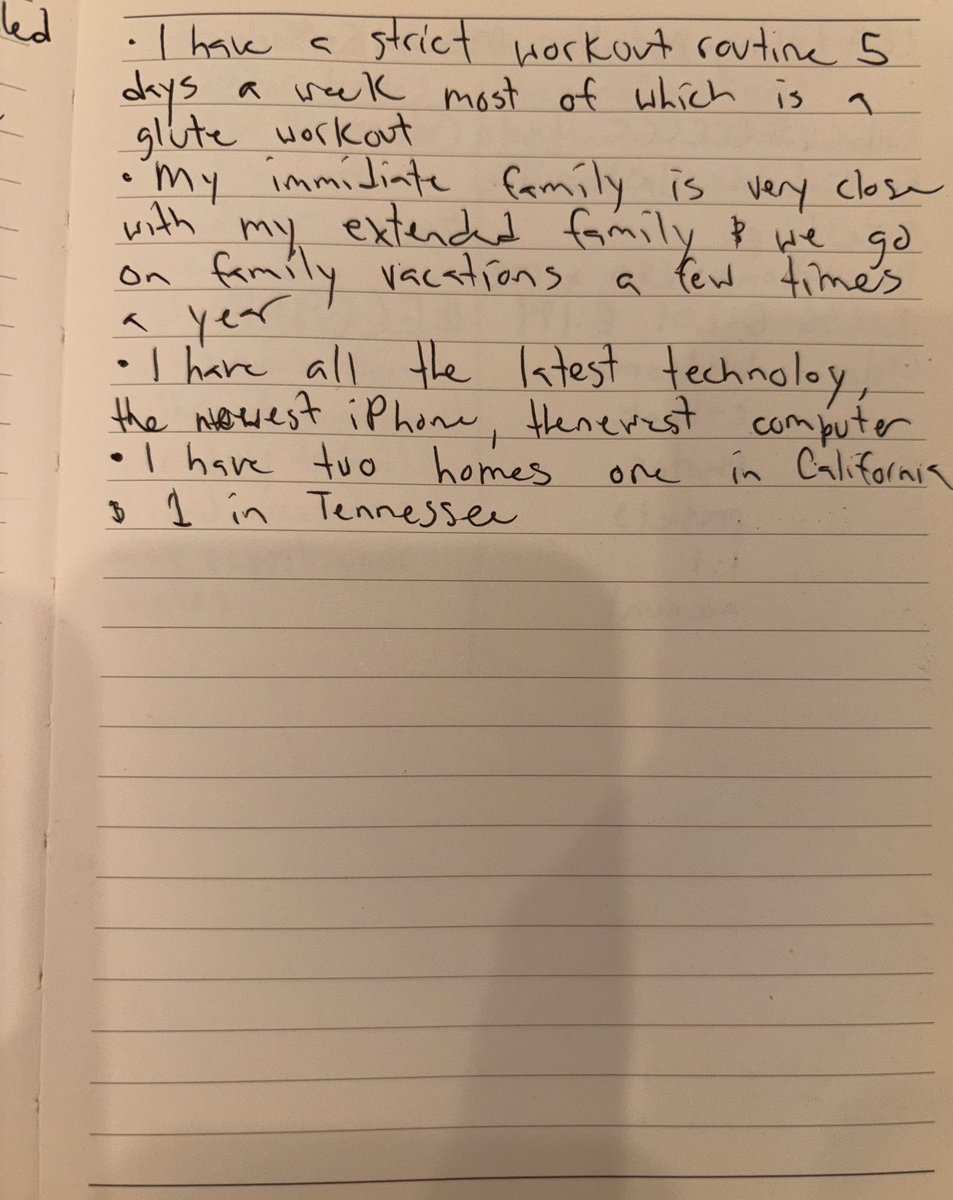 led
• I have a strict workout routine 5
days a week most of which is a
glute workout
• My immidiate family is very close
with my extended family & we go
on family vacations a few times
a year
• I have all the latest technoloy,
the newest iPhone, thenewest computer
• I have two homes one in California
& 1 in Tennessee